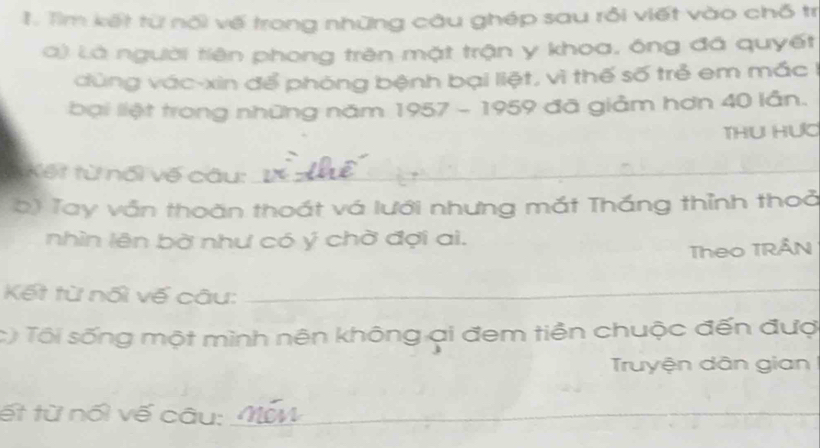 1. Tìm kết từ nối vế trong những câu ghép sau rồi viết vào chỗ tr
a) Là người tiên phong trên mặt trận y khoa, ông đã quyết
dùng vác-xin để phòng bệnh bại liệt, vì thế số trẻ em mắc
bại liệt trong những năm 1957 - 1959 đã giảm hơn 40 lần.
THU HƯƠ
Kết từ nối vế câu: vì thế
b) Tay vẫn thoăn thoắt vá lưới nhưng mắt Thắng thỉnh thoả
nhìn lên bờ như có ý chờ đợi ai.
Theo TRẦN
Kết từ nối vế câu:
c) Tôi sống một mình nên không ai đem tiền chuộc đến đượ
Truyện dân gian
ết từ nối vế câu: nên